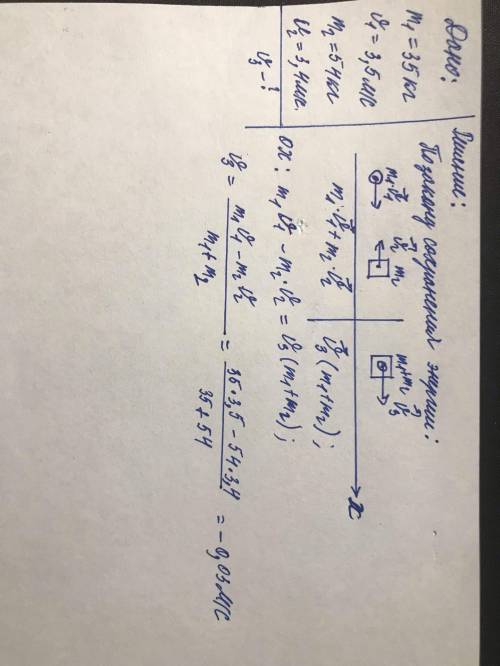 Дано:
m₁ = 35 кг
υ₁ = 3,5 м/с
m₂ = 54 кг
υ₂ = 3,4 м/с.
υ₃ - ?
Решение:
По закону сохранения энергии:
m₁ υ⃗₁ υ⃗₂ m₂ m₁+m₂ υ⃗₃
x
m₁·υ⃗₁+m₂·υ⃗₂ υ⃗₃(m₁+m₂);
ox: m₁υ₁ - m₂·υ₂ = υ₃(m₁+m₂);
υ₃ = (m₁υ₁ - m₂υ₂)/(m₁+m₂) = (35·3,5 - 54·3,4)/(35+54) = -0,03 м/с